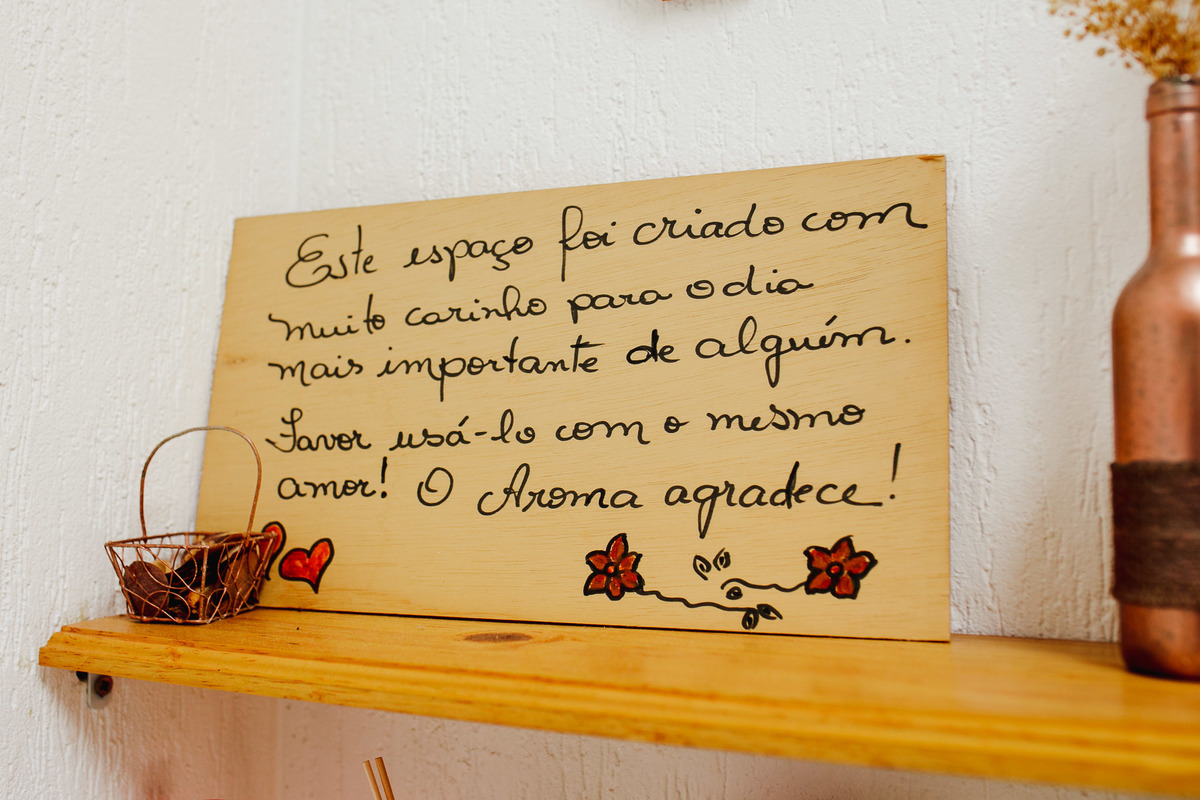 Este espaço foi criado com
muito carinho para o dia
mais importante de alguém.
Favor usá-lo com o mesmo
amor! O Aroma agradece!